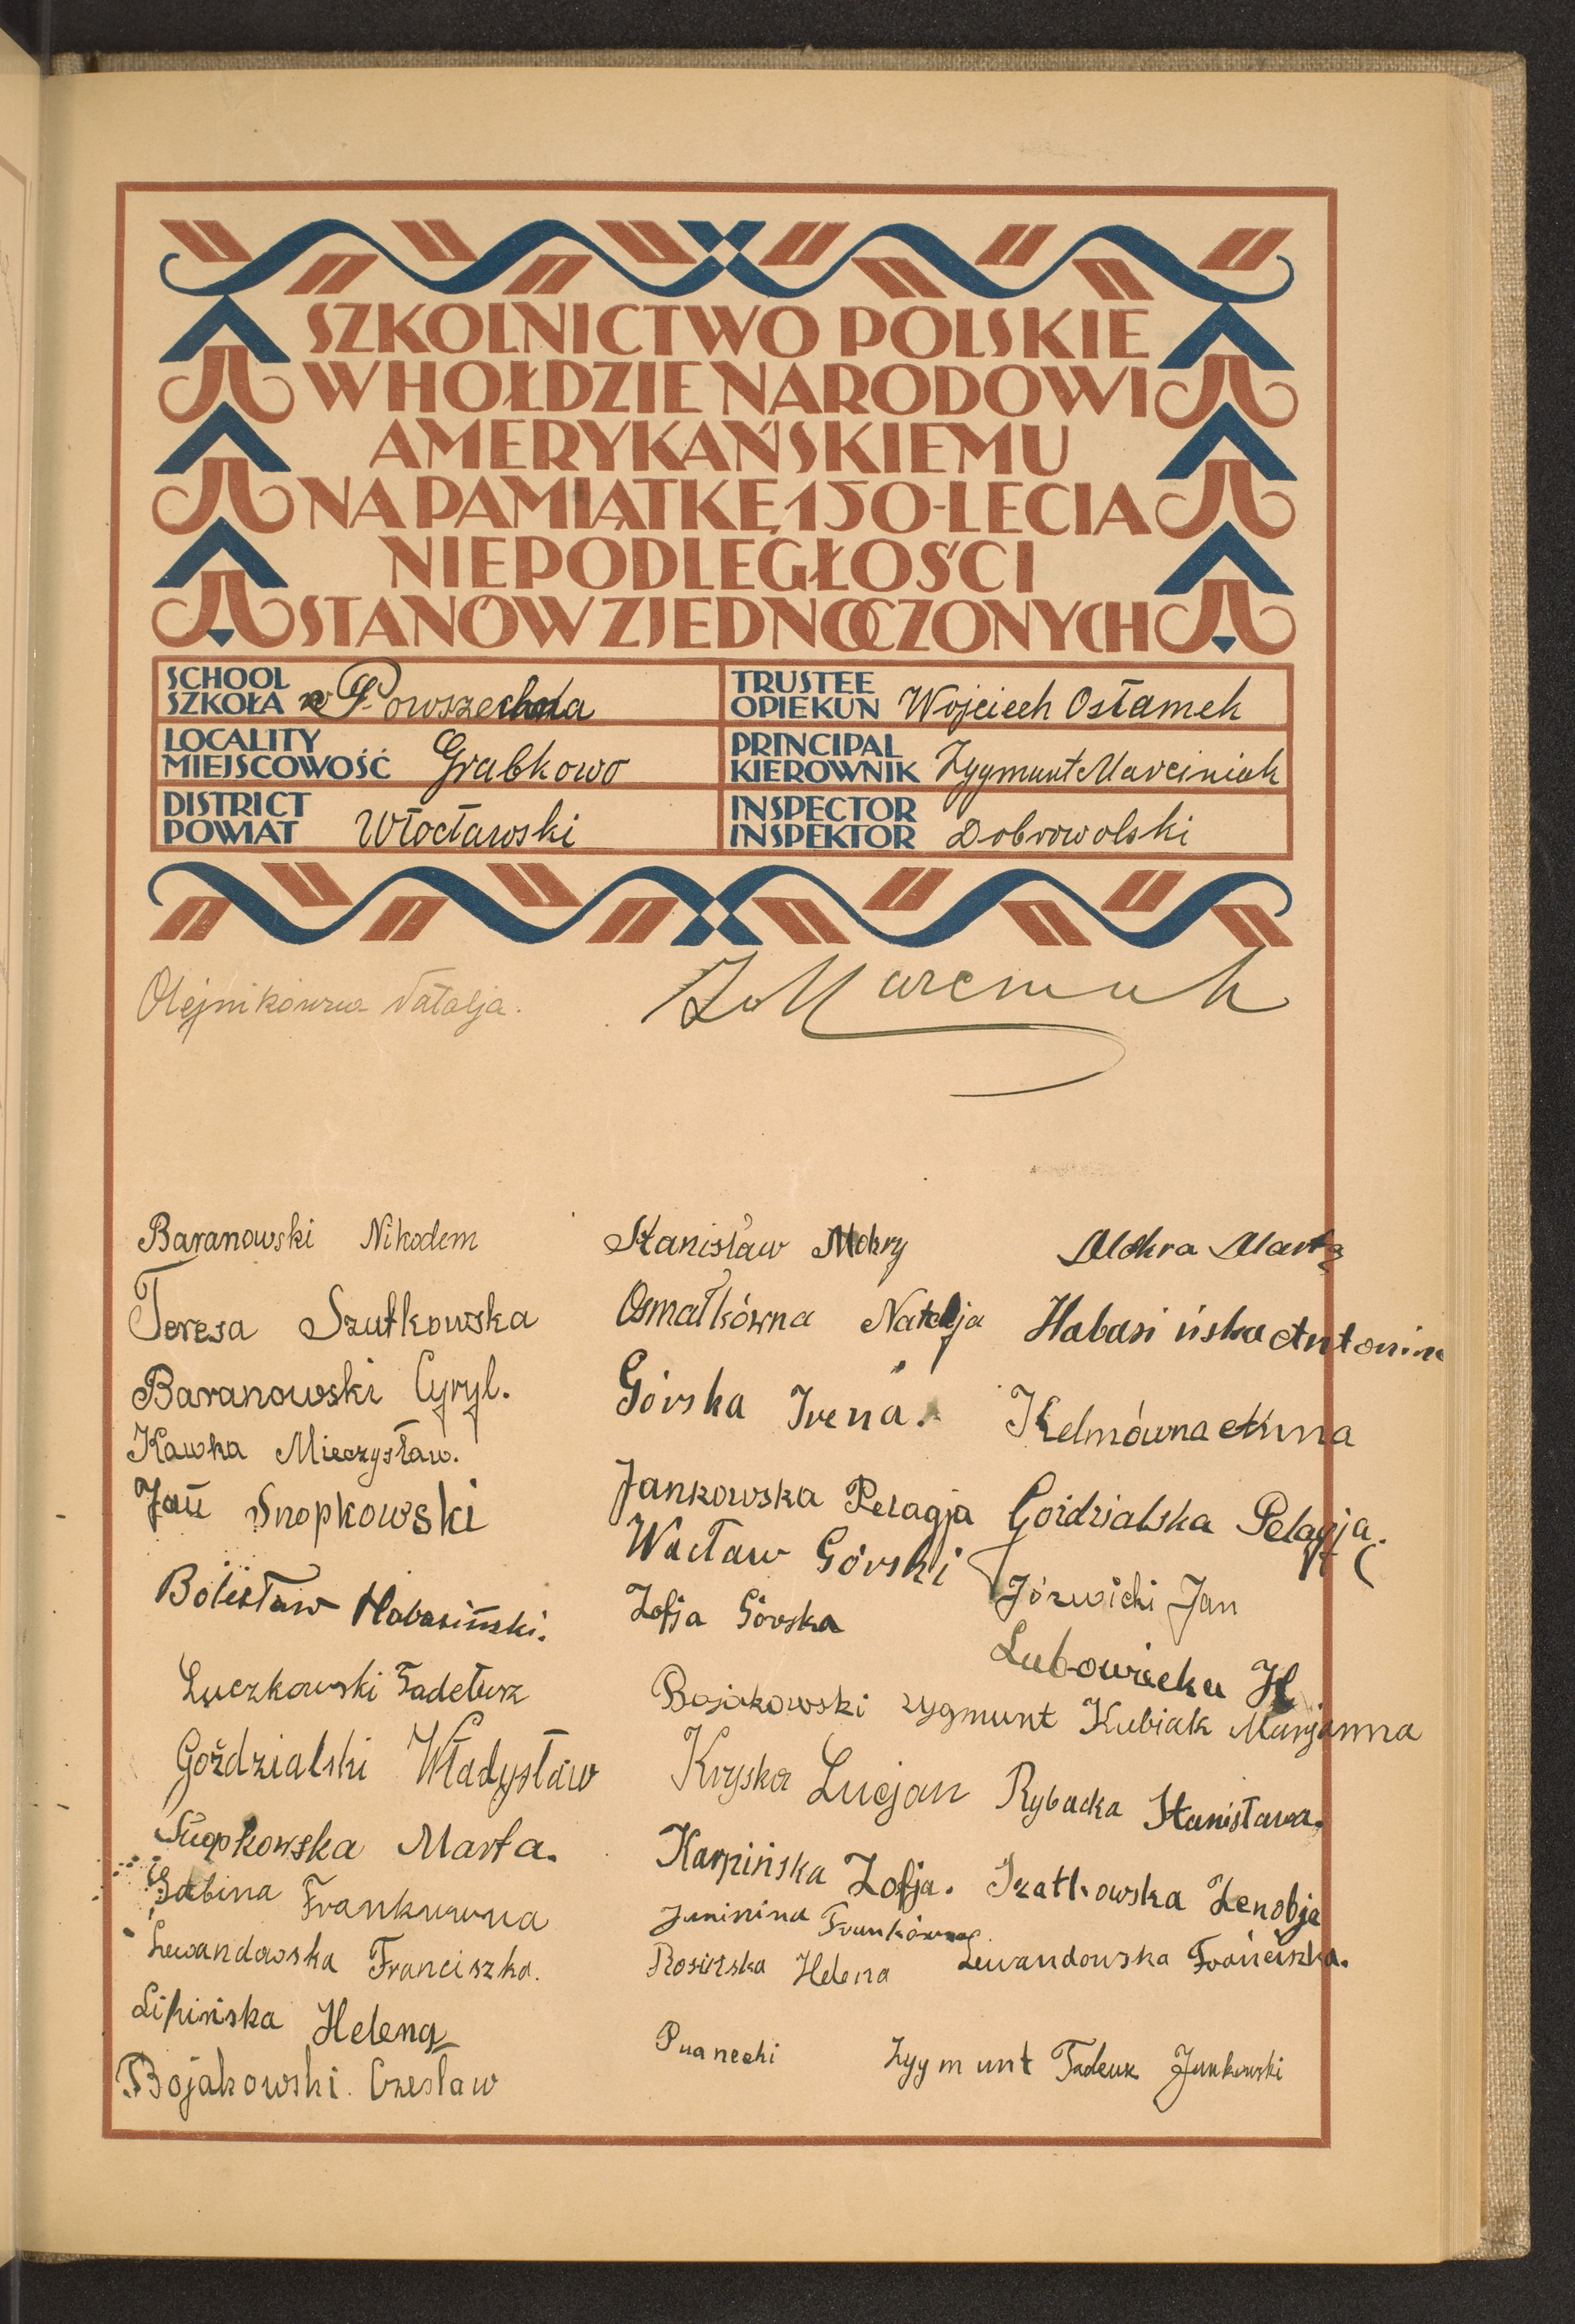 SZKOLNICTWO POLSKIE
W HOŁDZIE NARODOWI
AMERYKAŃSKIEMU
NA PAMIĄTKĘ 150-LECIA
NIEPODLEGŁOŚCI
STANÓW ZJEDNOCZONYCH
SCHOOL
SZKOŁA Powszechna
TRUSTEE
OPIEKUN Wojciech Osłamek
LOCALITY
MIEJSCOWOŚĆ Grabkowo
PRINCIPAL
KIEROWNIK Zygmunt Marciniak
DISTRICT
POWIAT Włocławski
INSPECTOR
INSPEKTOR Dobrowolski
Olejnikówna Natalja.
Z. Marciniak
Baranowski Nikodem
Teresa Szutkowska
Baranowski Cyryl.
Kawka Mieczysław.
Jan Snopkowski
Bolesław Habasiński.
Luczkowski Tadeusz
Goździalski Władysław
Snopkowska Marta.
Sabina Frankówna
Lewandowska Franciszka.
Lipińska Helena
Bojakowski Czesław
Stanisław Mokry
Osmałkówna Natalja
Górska Irena.
Jankowska Pelagja
Wacław Górski
Zofja Górska
Bojakowski Zygmunt
Kryska Lucjan
Karpińska Zofja.
Janinina Frankówna
Rosińska Helena
Mokra Marta
Habasińska Antonina
Kelmówna Anna
Goździalska Pelagja.
Józwicki Jan
Lubowiecka H
Kubiak Marjanna
Rybacka Stanisława.
Szatkowska Zenobja
Lewandowska Franciszka.
Zygmunt Tadeuz Jankowski